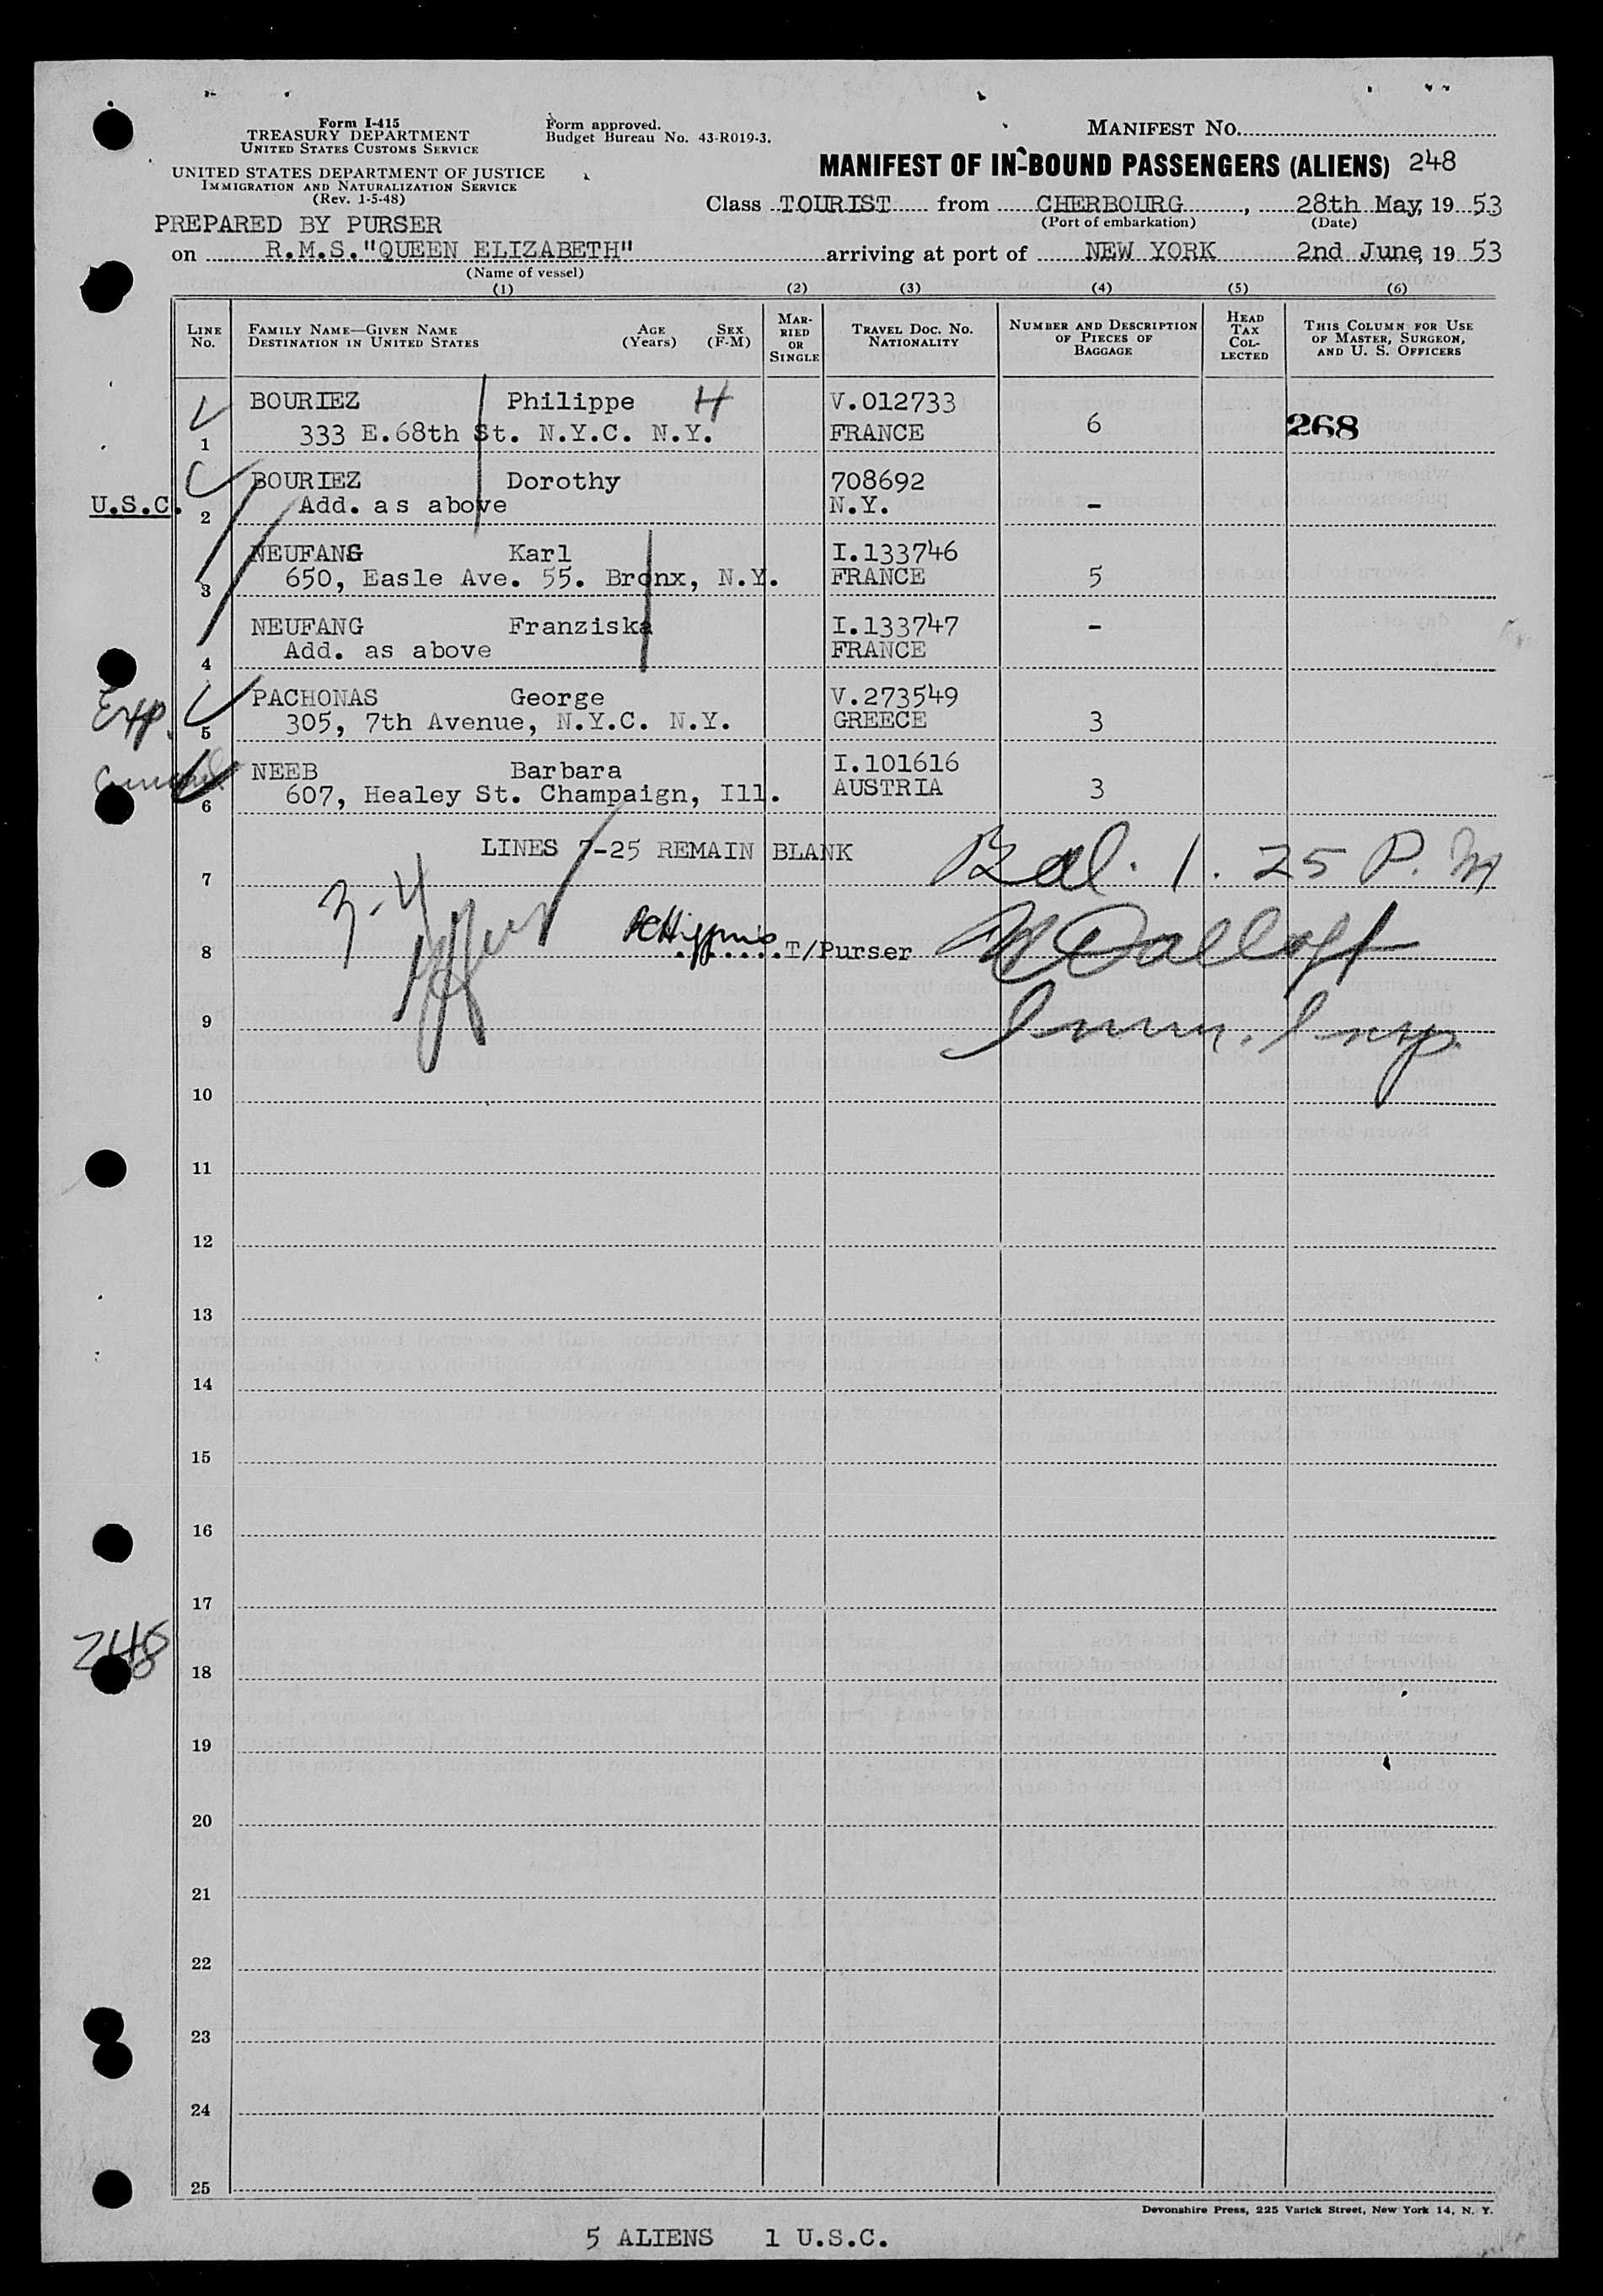 Form I-415
TREASURY DEPARTMENT
UNITED STATES CUSTOMS SERVICE
UNITED STATES DEPARTMENT OF JUSTICE
IMMIGRATION AND NATURALIZATION SERVICE
(Rev. 1-5-48)
Form approved.
Budget Bureau No. 43-R019-3.
MANIFEST NO.
MANIFEST OF IN-BOUND PASSENGERS (ALIENS) 248
Class TOURIST from CHERBOURG, 28th May, 19 53
(Port of embarkation) (Date)
PREPARED BY PURSER
on R.M.S."QUEEN ELIZABETH" arriving at port of NEW YORK 2nd June, 19 53
(Name of vessel)
(1) (2) (3) (4) (5) (6)
LINE No. FAMILY NAME—GIVEN NAME DESTINATION IN UNITED STATES AGE (Years) SEX (F-M) MARRIED OR SINGLE TRAVEL DOC. NO. NATIONALITY NUMBER AND DESCRIPTION OF PIECES OF BAGGAGE HEAD TAX COLLECTED THIS COLUMN FOR USE OF MASTER, SURGEON, AND U. S. OFFICERS
BOURIEZ Philippe H V.012733
1 333 E.68th St. N.Y.C. N.Y. FRANCE 6 268
BOURIEZ Dorothy 708692
U.S.C. 2 Add. as above N.Y. -
NEUFANG Karl I.133746
3 650, Easle Ave. 55. Bronx, N.Y. FRANCE 5
NEUFANG Franziska I.133747 -
4 Add. as above FRANCE
PACHONAS George V.273549
Exp. 5 305, 7th Avenue, N.Y.C. N.Y. GREECE 3
NEEB Barbara I.101616
6 607, Healey St. Champaign, Ill. AUSTRIA 3
LINES 7-25 REMAIN BLANK
7 Bal. 1.25 P.M
8 T/Purser
9 Imm. Insp.
10
11
12
13
14
15
16
17
248
18
19
20
21
22
23
24
25
Devonshire Press, 225 Varick Street, New York 14, N. Y.
5 ALIENS 1 U.S.C.